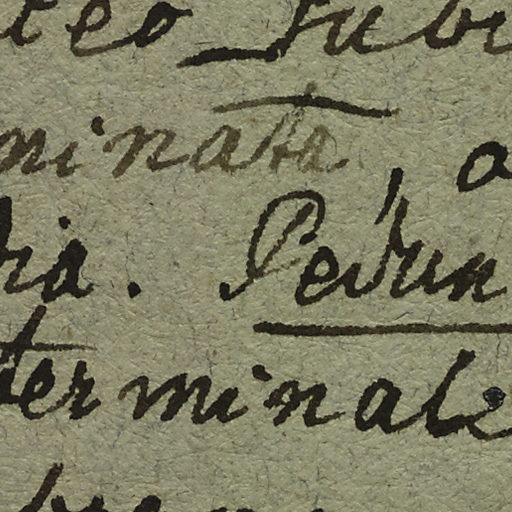 teo_ subu
minata, a
dia. Pedun
terminale